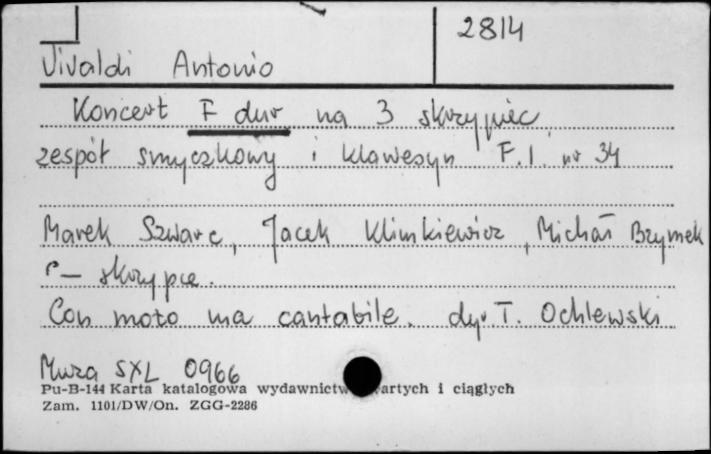 2814
Vivaldi Antonio
Koncert F dur na 3 skrzypiec,
zespół smyczkowy i klawesyn F.I. nr 34
Marek Szwarc, Jacek Klimkiewicz, Michał Brzymek
– skrzypce.
Con moto ma cantabile. dyr. T. Ochlewski
Muza SXL 0966
Pu-B-144 Karta katalogowa wydawnictw artych i ciągłych
Zam. 1101/DW/On. ZGG-2286